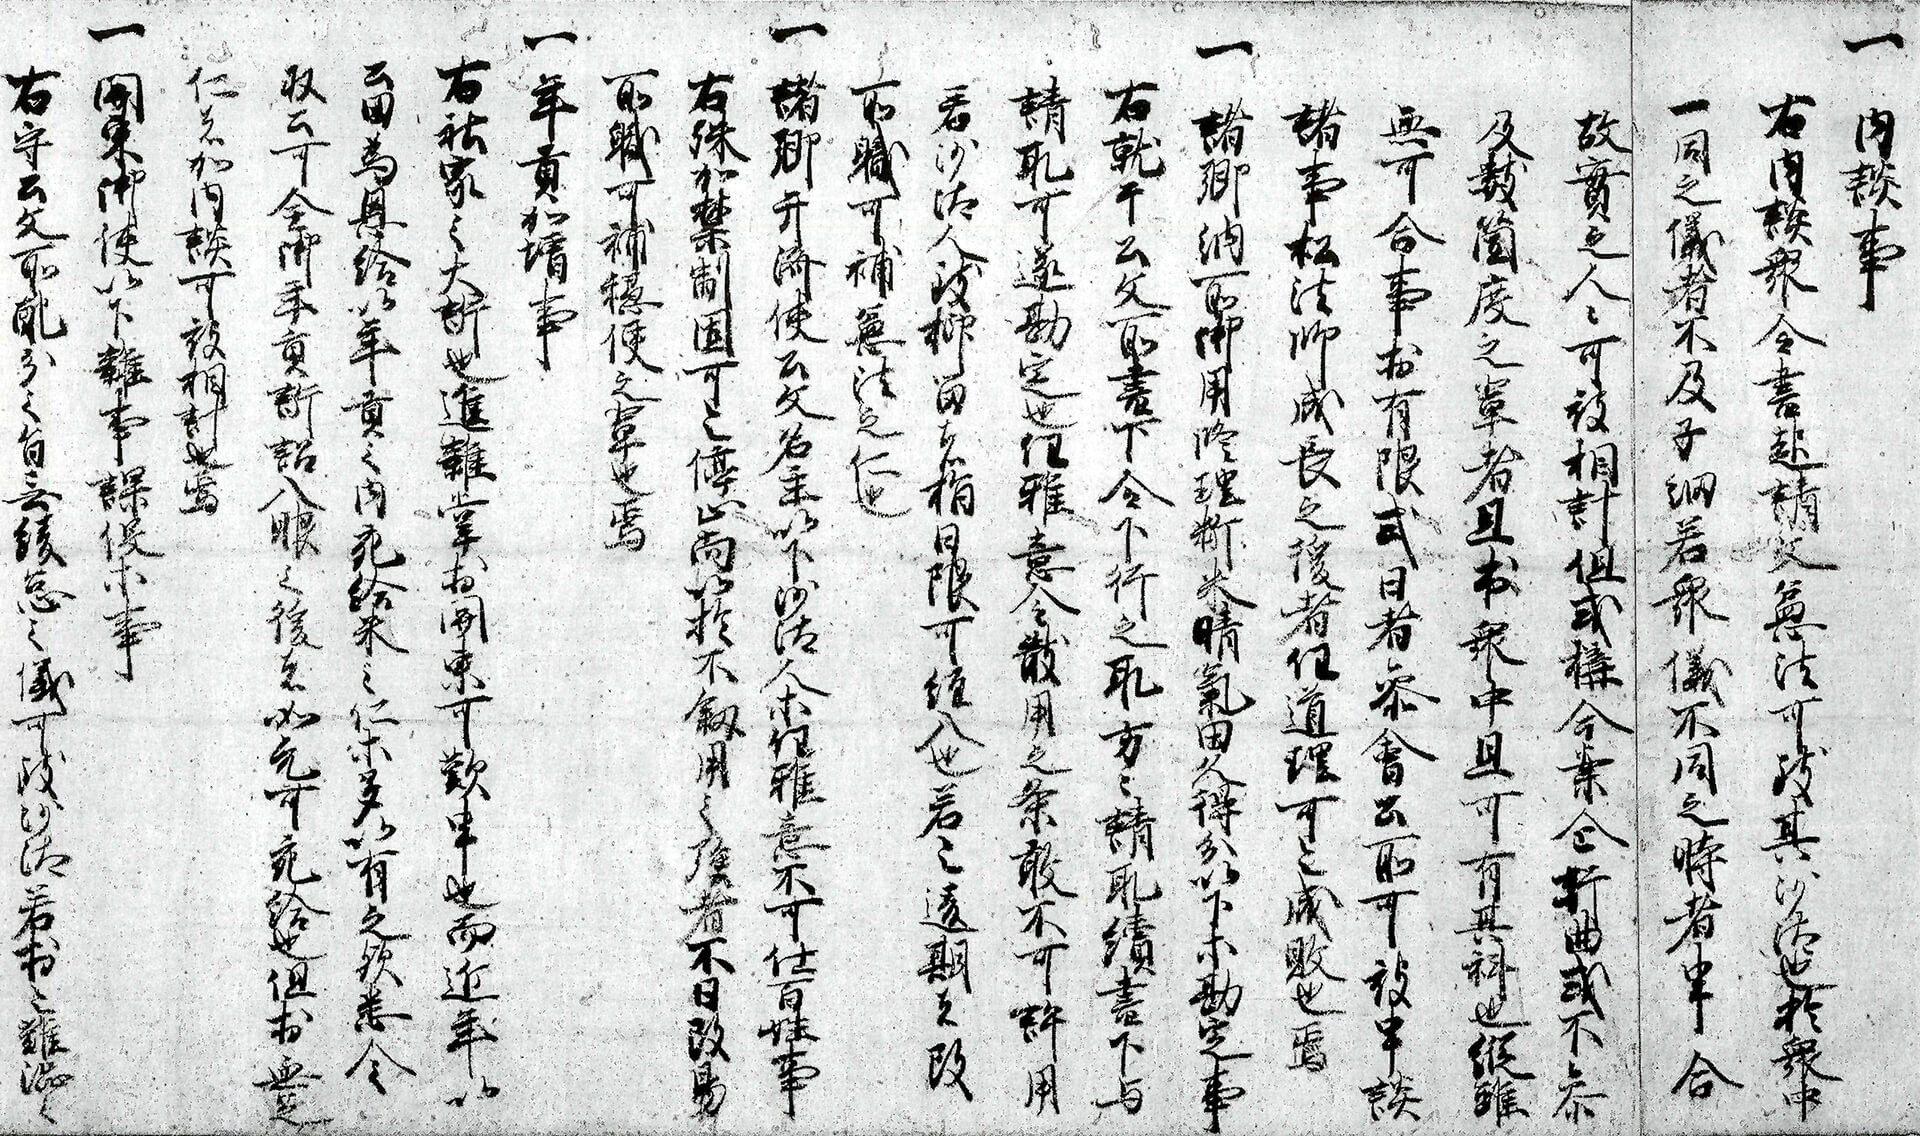 一 内談事
右内談衆令書起請文無法可致其沙汰也於衆中
一同之儀者不及子細若衆儀不同之時者申合
故實之人々可被相計但或構今案企折曲或不参
及数箇度之輩者且於衆中且可有其科也縦雖
無可合事於有限式日者参會公所可被申談
諸事松法師成長之後者任道理可令成敗也焉
一 諸郷納所御用修理料米晴氣田久得分以下未勘定事
右就干公文所書下令下行之取方々請取續書下与
請取可遂勘定也任雅意令散用之条敢不可許用
者沙汰人致抑留者指日限可 也若令遠期者改
所職可補無 法之仁也
一 諸郷弁済使公文名主以下沙汰人等任雅意不可仕百姓事
右殊加禁制固可令停止尚以於不叙用之族者不日改易
所職可補穏便之輩也焉
一 年貢加増事
右社家之大訴也進雑掌於関東可歎申也而近年以
公田為具給以年貢之内宛給米之仁等多以有之歟悉令
収公可令御年貢訴詔 眼之後者如元可宛給也但於無足
仁者加内談可被相計也焉
一 関東御使以下雑事課役等事
右守公文所配分之旨無緩怠之儀可致沙汰若於令難渋之